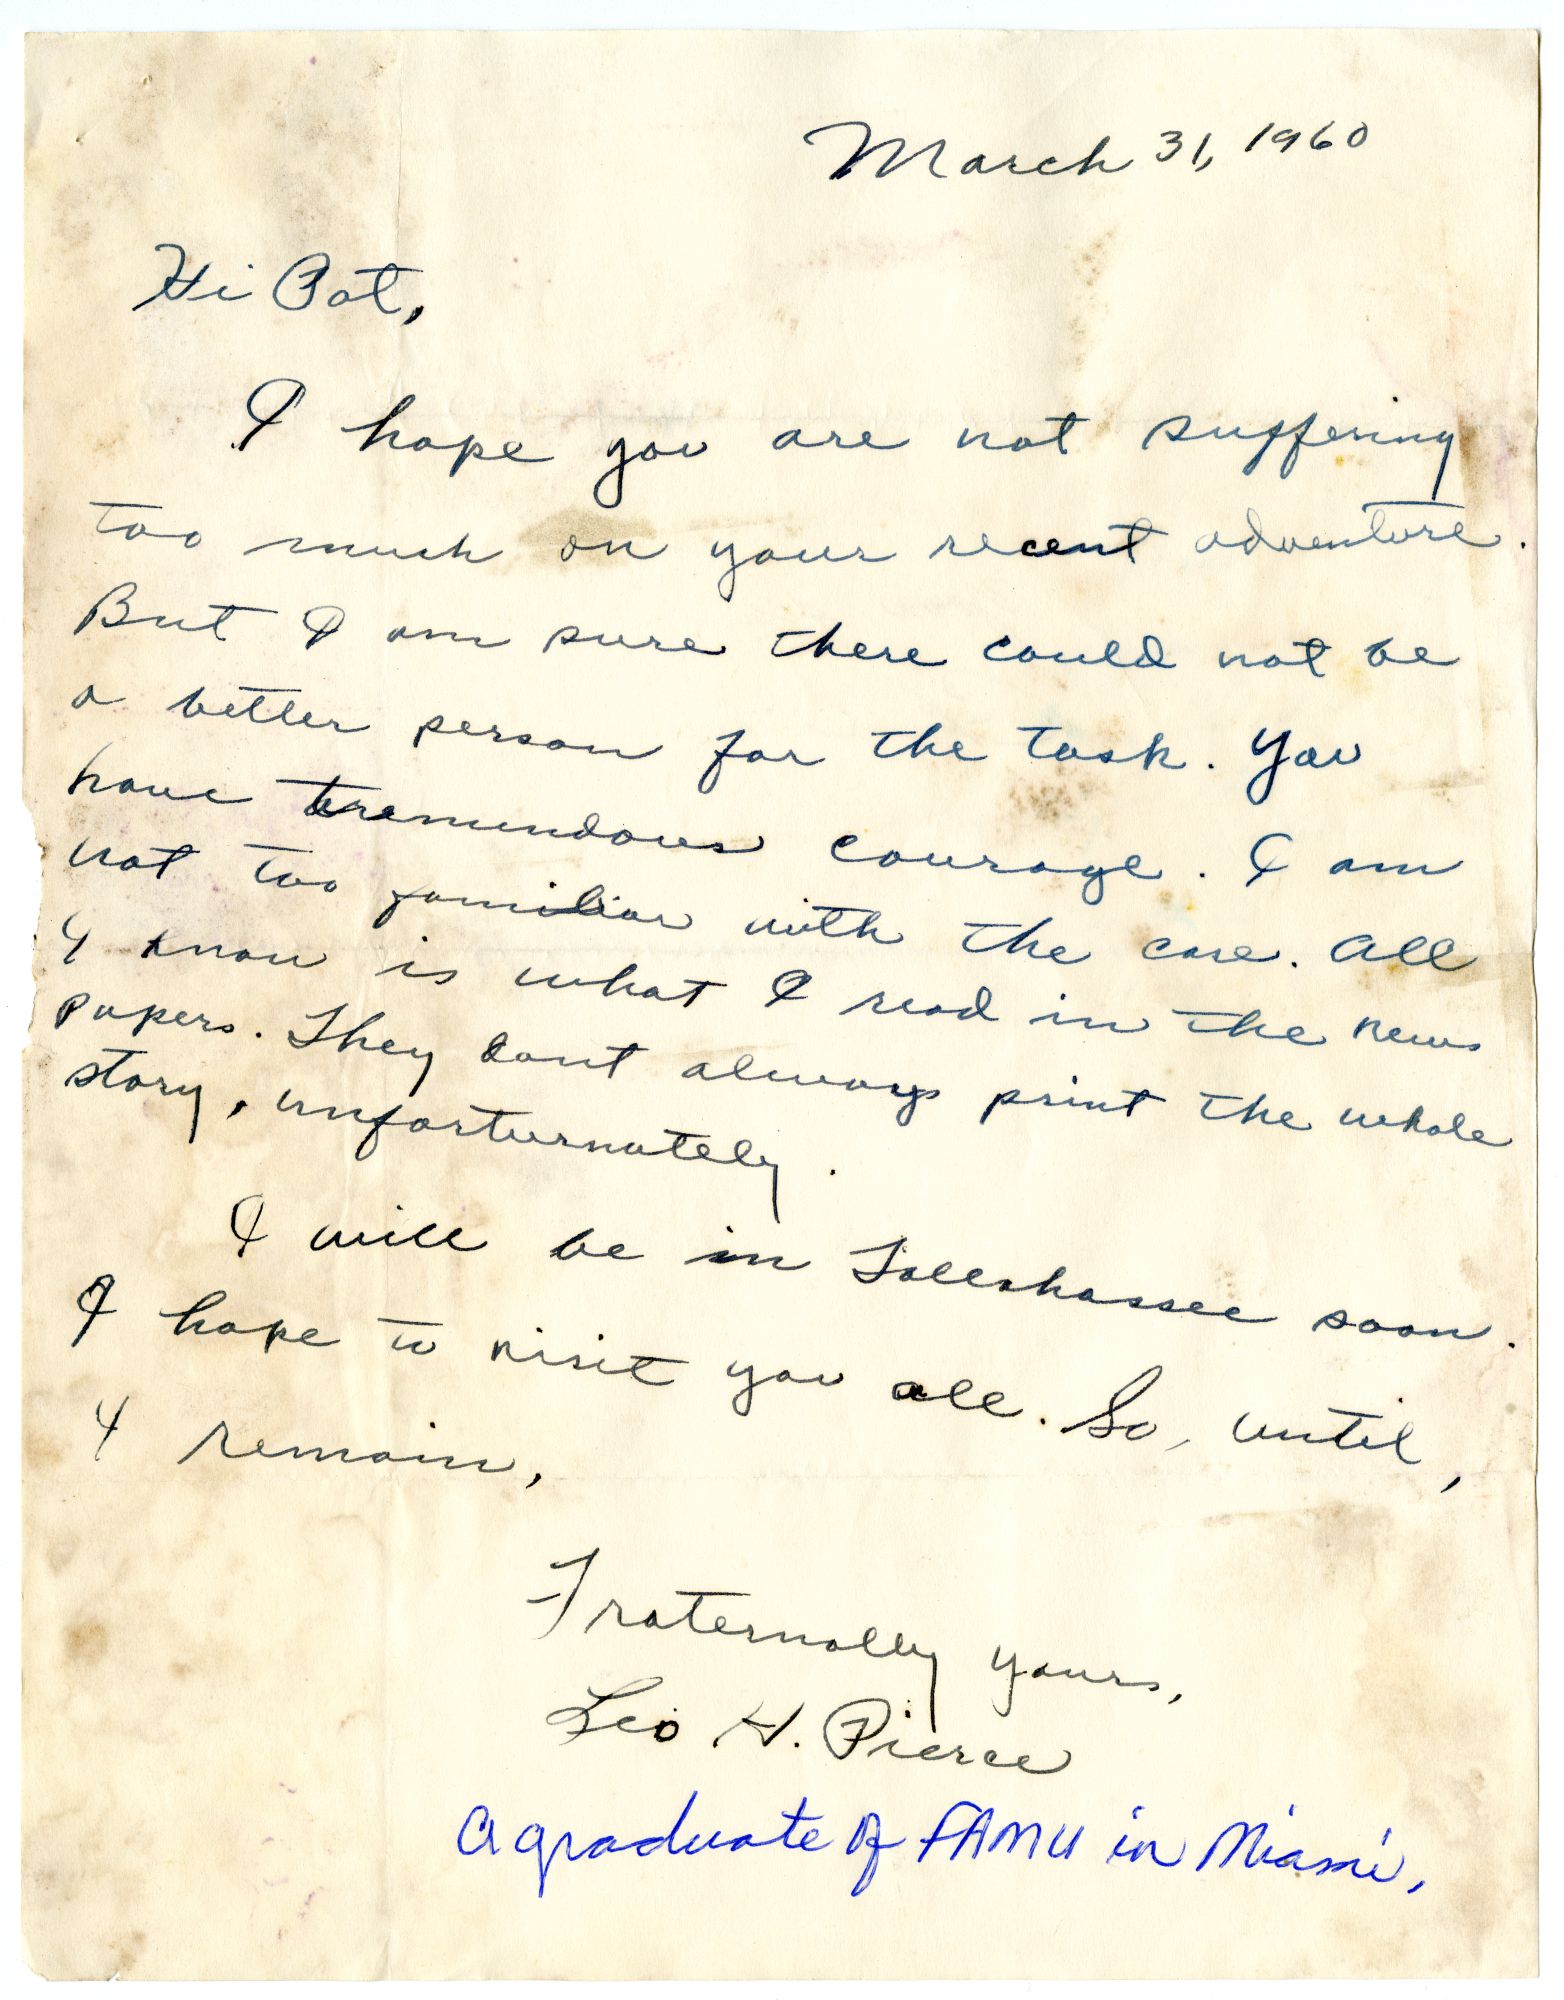 March 31, 1960
Hi Pat,
I hope you are not suffering
too much on your recent adventure.
But I am sure there could not be
a better person for the task. You
have tremendous courage. I am
not too familiar with the case. All
I know is what I read in the news
papers. They dont always print the whole
story, unforturnately.
I will be in Tallahassee soon.
I hope to visit you all. So, until,
I remain,
Fraternally yours,
Leo H. Pierce
A graduate of FAMU in Miami,